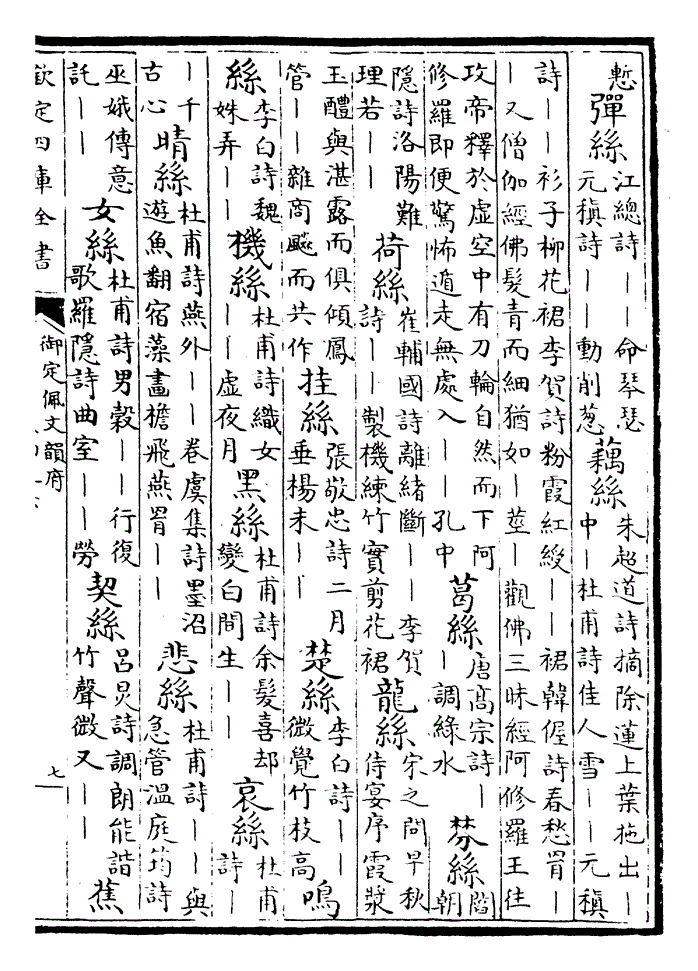 慙
彈絲
江總詩——命琴瑟
元稹詩——動削葱
藕絲
朱超道詩摘除蓮上葉拖出—
中—杜甫詩佳人雪——元稹
詩——衫子柳花裙李賀詩粉霞紅綬——裙韓偓詩春愁罥—
—又僧伽經佛髮青而細猶如—莖—觀佛三昧經阿修羅王往
攻帝釋於虛空中有刀輪自然而下阿
修羅即便驚怖遁走無處入——孔中
葛絲
唐高宗詩—
—調綠水
棼絲
階
朝
隱詩洛陽難
理若——
荷絲
崔輔國詩離緒斷——李賀
詩——製機練竹實剪花裙
龍絲
宋之問早秋
侍宴序霞漿
玉醴與湛露而俱傾鳳
管——雜商飈而共作
挂絲
張敬忠詩二月
垂楊未——
楚絲
李白詩——
微覺竹枝高
鳴
絲
李白詩魏
姝弄——
機絲
杜甫詩織女
——虛夜月
黑絲
杜甫詩余髮喜却
變白間生——
哀絲
杜甫
詩——
—千
古心
晴絲
杜甫詩燕外——卷虞集詩墨沼
遊魚翻宿藻畫檐飛燕罥——
悲絲
杜甫詩——與
急管溫庭筠詩
巫娥傳意
託——
女絲
杜甫詩男穀——行復
歌羅隱詩曲室——勞
契絲
呂炅詩調朗能諧
竹聲微又——
蕉
欽定四庫全書
御定佩文韻府
七